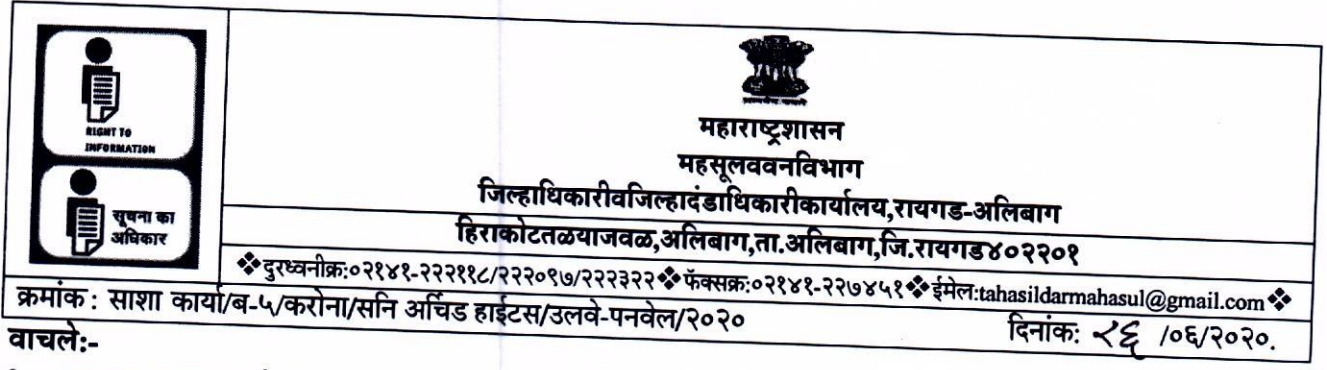 RIGHT TO
INFORMATION
सूचना का
अधिकार
महाराष्ट्रशासन
महसूलववनविभाग
जिल्हाधिकारीवजिल्हादंडाधिकारीकार्यालय,रायगड-अलिबाग
हिराकोटतळयाजवळ,अलिबाग,ता.अलिबाग,जि.रायगड४०२२०१
❖दुरध्वनीक्र:०२१४१-२२२११८/२२२०९७/२२२३२२❖फॅक्सक्र:०२१४१-२२७४५१❖ईमेल:tahasildarmahasul@gmail.com❖
क्रमांक : साशा कार्या/ब-५/करोना/सनि अर्चिड हाईटस/उलवे-पनवेल/२०२० दिनांक: २६ /०६/२०२०.
वाचले:-